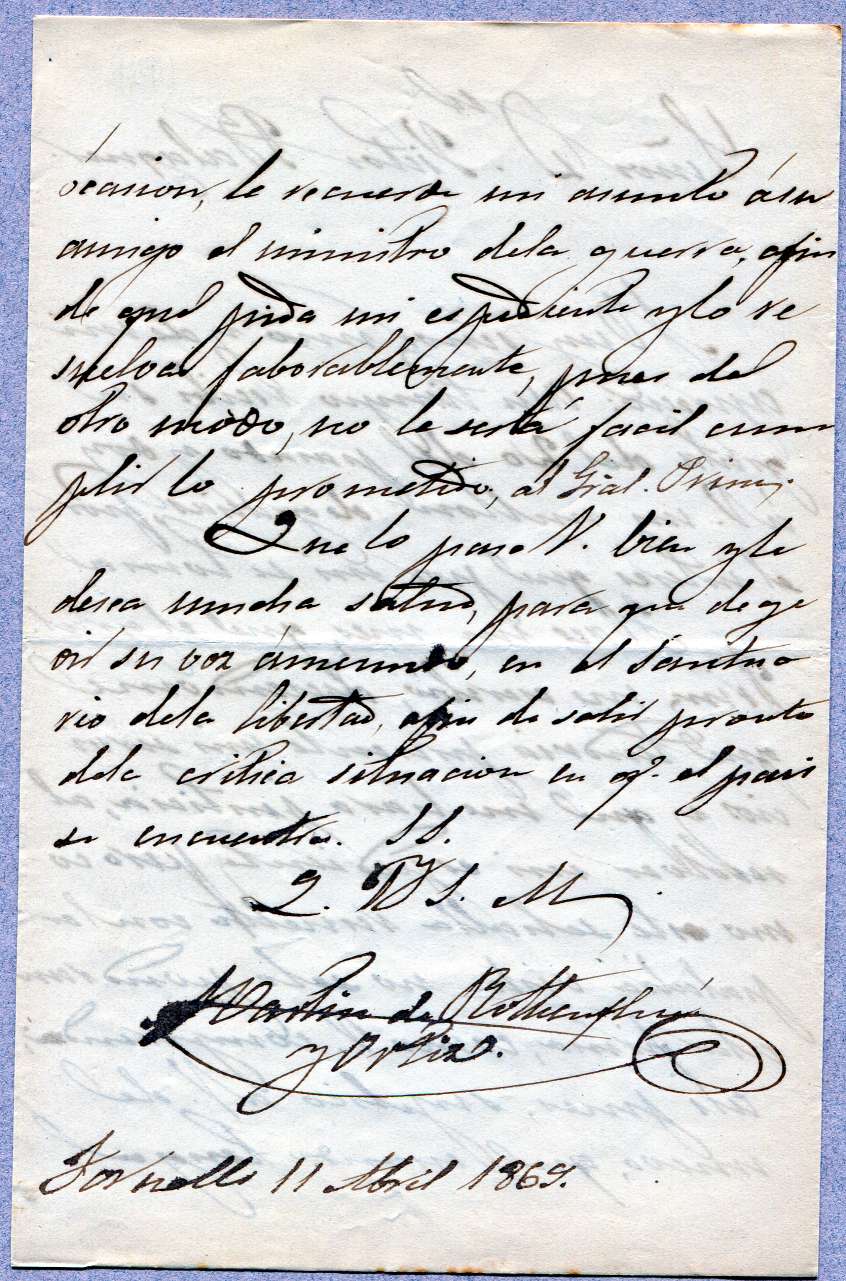 ócasion, le recuerde mi asunto ásu
amigo el ministro dela guerra, afin
de qué pida mi espediente ylo re
suelva faborablemente, pues del
otro modo, no le será facil cum
plir lo prometido, al Gral. Prim.
Que lo pase V. bien yle
desea mucha salud, para que dege
oir su voz ámenudo, en el Santua
rio dela libertad, afin de salir pronto
dela critica situacion en qe. el pais
se encuentra. SS.
Q. B. S. M.
Martin de
y Ortiz.
Fornells 11 Abril 1869.